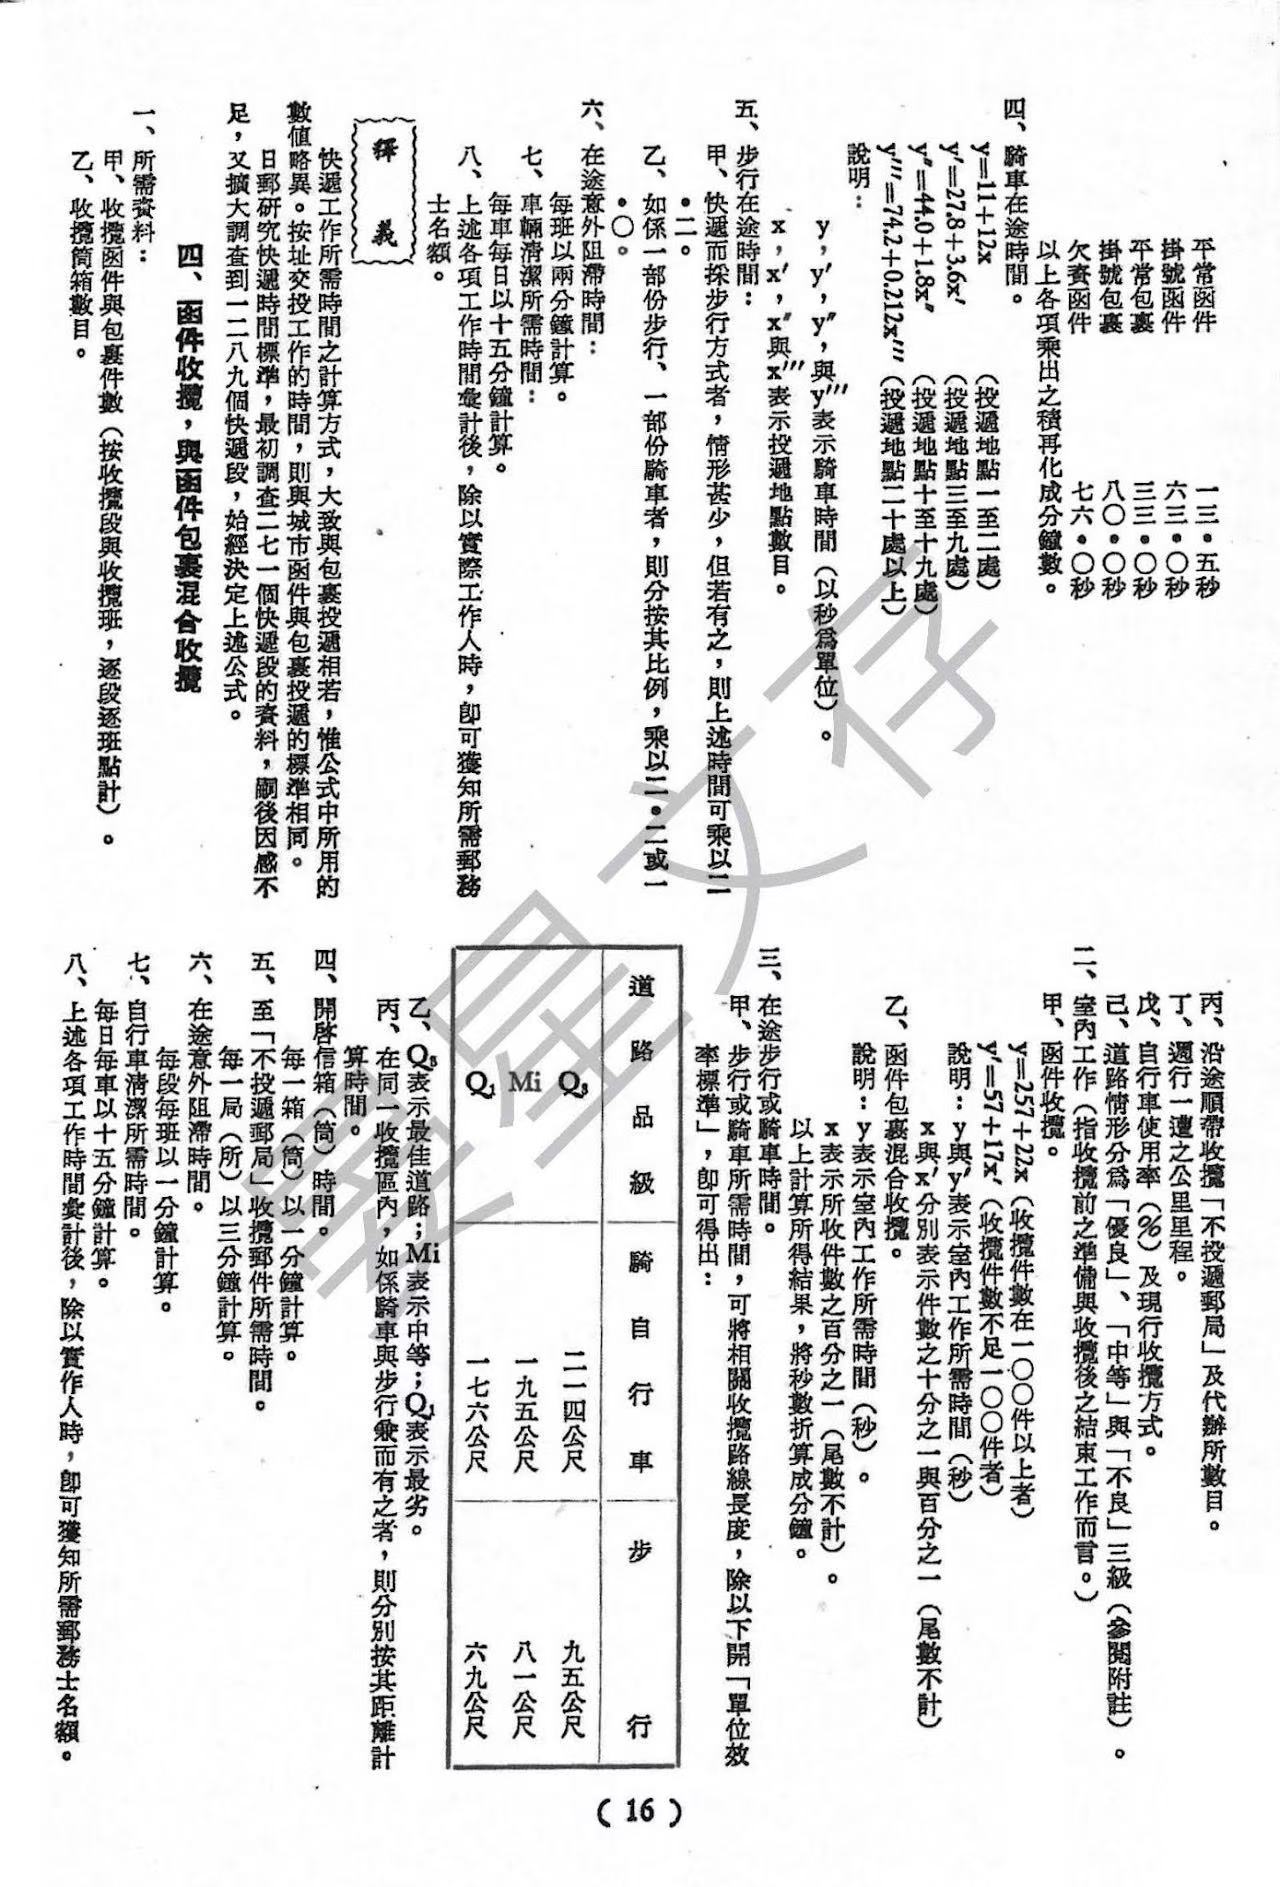 平常函件　一三•五秒
掛號函件　六三•〇秒
平常包裹　三三•〇秒
掛號包裹　八〇•〇秒
欠資函件　七六•〇秒
以上各項乘出之積再化成分鐘數。
四、騎車在途時間。
y=11+12x（投遞地點一至二處）
y′=27.8+3.6x′（投遞地點三至九處）
y″=44.0+1.8x″（投遞地點十至十九處）
y‴=74.2+0.212x‴（投遞地點二十處以上）
說明：
y，y′，y″，與y‴表示騎車時間（以秒爲單位）。
x，x′，x″與x‴表示投遞地點數目。
五、步行在途時間：
甲、快遞而採步行方式者，情形甚少，但若有之，則上述時間可乘以二
•二。
乙、如係一部份步行、一部份騎車者，則分按其比例，乘以二•二或一
•〇。
六、在途意外阻滯時間：
每班以兩分鐘計算。
七、車輛清潔所需時間：
每車每日以十五分鐘計算。
八、上述各項工作時間彙計後，除以實際工作人時，卽可獲知所需郵務
士名額。
釋義
快遞工作所需時間之計算方式，大致與包裹投遞相若，惟公式中所用的
數値略異。按址交投工作的時間，則與城市函件與包裹投遞的標準相同。
日郵研究快遞時間標準，最初調查二七一個快遞段的資料，嗣後因感不
足，又擴大調查到一二八九個快遞段，始經決定上述公式。
四、函件收攬，與函件包裹混合收攬
一、所需資料：
甲、收攬函件與包裹件數（按收攬段與收攬班，逐段逐班點計）。
乙、收攬筒箱數目。
丙、沿途順帶收攬「不投遞郵局」及代辦所數目。
丁、週行一遭之公里里程。
戊、自行車使用率（%）及現行收攬方式。
己、道路情形分爲「優良」、「中等」與「不良」三級（參閱附註）。
二、室內工作（指收攬前之準備與收攬後之結束工作而言。）
甲、函件收攬。
y=257+22x（收攬件數在一〇〇件以上者）
y′=57+17x′（收攬件數不足一〇〇件者）
說明：y與y′表示室內工作所需時間（秒）
x與x′分別表示件數之十分之一與百分之一（尾數不計）
乙、函件包裹混合收攬。
說明：y表示室內工作所需時間（秒）。
x表示所收件數之百分之一（尾數不計）。
以上計算所得結果，將秒數折算成分鐘。
三、在途步行或騎車時間。
甲、步行或騎車所需時間，可將相關收攬路線長度，除以下開「單位效
率標準」，卽可得出：
道路品級　騎自行車　步行
Q₃　二一四公尺　九五公尺
Mi　一九五公尺　八一公尺
Q₁　一七六公尺　六九公尺
乙、Q₃表示最佳道路；Mi表示中等；Q₁表示最劣。
丙、在同一收攬區內，如係騎車與步行兼而有之者，則分別按其距離計
算時間。
四、開啓信箱（筒）時間。
每一箱（筒）以一分鐘計算。
五、至「不投遞郵局」收攬郵件所需時間。
每一局（所）以三分鐘計算。
六、在途意外阻滯時間。
每段每班以一分鐘計算。
七、自行車清潔所需時間。
每日每車以十五分鐘計算。
八、上述各項工作時間彙計後，除以實作人時，卽可獲知所需郵務士名額。
(16)
晨星文存